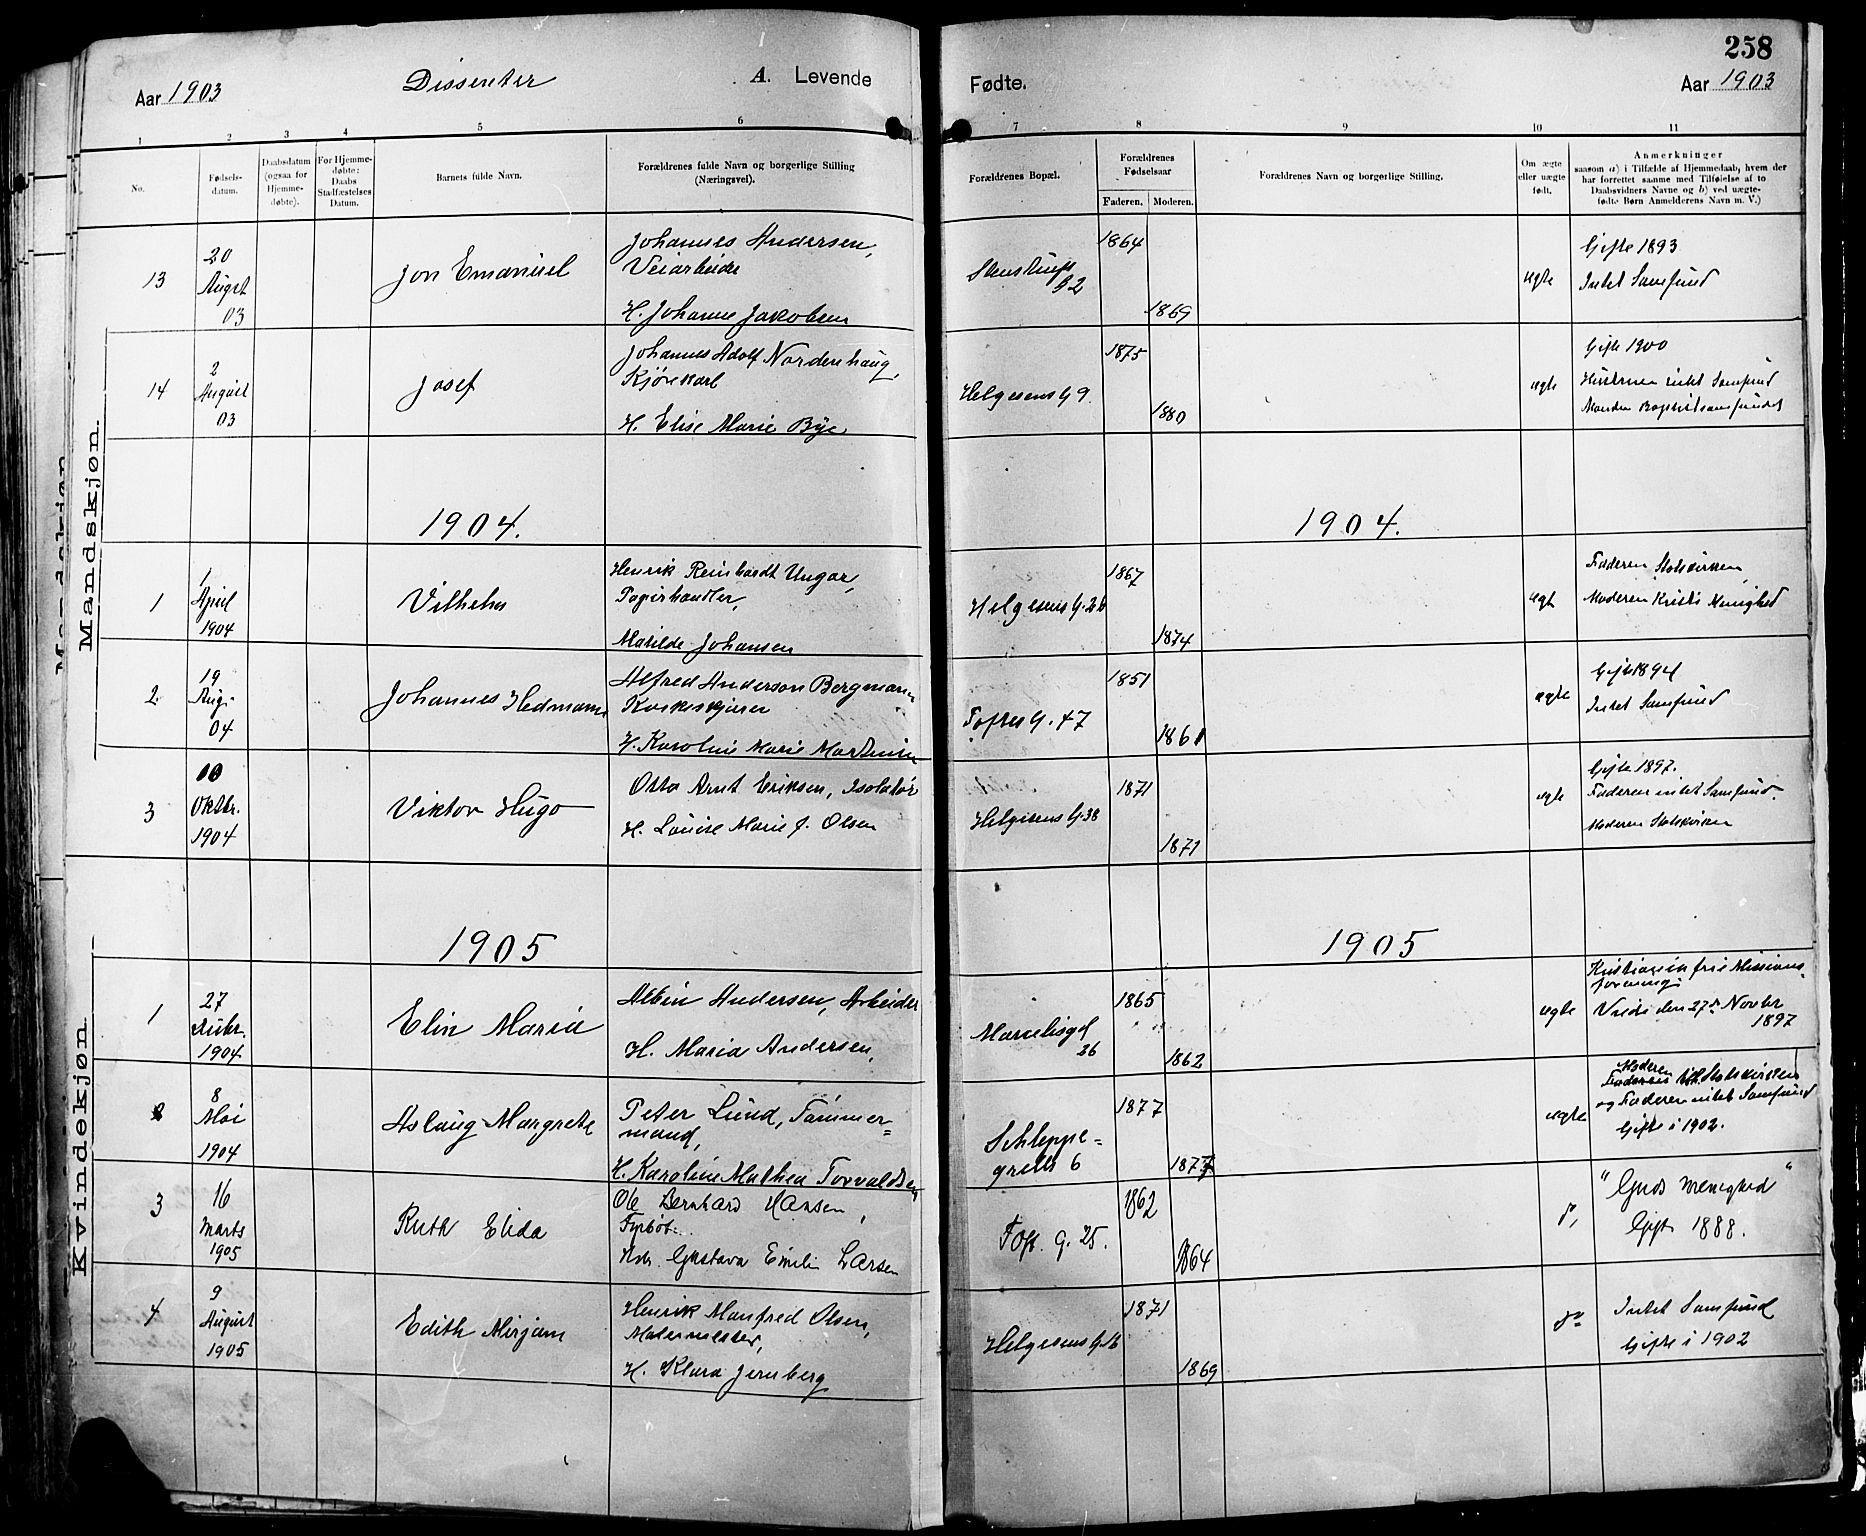 258
Aar 1903
Dissenter
A. Levende
Fødte.
Aar 1903
1 2 3 4 5 6 7 8 9 10 11
No.
Fødsels-
datum.
Daabsdatum
(ogsaa for
Hjemme-
døbte).
For Hjemme-
døbte:
Daabs
Stadfæstelses
Datum.
Barnets fulde Navn.
Forældrenes fulde Navn og borgerlige Stilling
(Næringsvei).
Forældrenes Bopæl.
Forældrenes
Fødselsaar
Faderen. Moderen.
Forældrenes Navn og borgerlige Stilling.
Om ægte
eller uægte
født.
Anmerkninger
saasom a) i Tilfælde af Hjemmedaab, hvem der
har forrettet saamme med Tilføielse af to
Daabsvidners Navne og b) ved uægte-
fødte Børn Anmelderens Navn m. V.)
Mandskjøn
Mandskjøn.
13
20
August
03
Jon Emanuel
Johannes Andersen,
Veiarbeider
H. Johanne Jakobsen
1864
1869
ægte
Gifte 1893
Intet Samfund
14
2
August
03
Josef
Johannes Adolf Nordenhaug,
Kjørekarl
H. Elise Marie Bye
Helgesens G 9
1875
1880
ægte
Gifte 1900
Hustruen intet Samfund
Manden Baptistsamfundet
1904.
1904.
1
1
April
1904
Vilhelm
Henrik Reinhardt Ungar,
Papirhandler,
Matilde Johansen
Helgesens G. 26
1867
1874
ægt
Faderen Statskirken,
Moderen Kristi Menighed
2
19
Aug.
04
Johannes Hedmann
Alfred Anderson Bergmann
H. Karoline Marie Martinsen
Toftes G. 47
1851
1861
ægte
Gift 1894
Intet Samfund
3
10
Oktbr.
1904
Viktor Hugo
Otto Arnt Eriksen, Isolatør
H. Louise Marie J. Olsen
Helgesens G. 38
1871
1871
ægte
Gifte 1897.
Faderen intet Samfund.
Moderen Statskirken
1905
1905
Kvindekjøn
1
27
1904
Elin Maria
Albin Andersen, Arbeider
H. Maria Andersen,
36
1865
1862
ægte
Kristiania frie Missions-
forening.
Viede den 27de Novbr
1897
2
8
Mai
1904
Aslaug Margrete
Peter Lund, Tømmer=
mand,
H. Karoline Mathea Torvaldsen
Schleppe=
grells 6
1877
1877
ægte
Moderen Statskirken
og Faderen intet Samfund
Gifte i 1902.
3
16
Marts
1905
Ruth Elida
Ole Bernhard Hansen,
Fyrbøt.
Hstr. Gustava Emilie Larsen
Toft. g. 25.
1862
1864
"Guds Menighed"
Gift 1888.
4
9
August
1905
Edith Mirjam
Henrik Manfred Olsen,
Malermester,
H. Klara Jernberg
Helgesens G. 16
1871
1869
do
Intet Samfund
Gifte i 1902